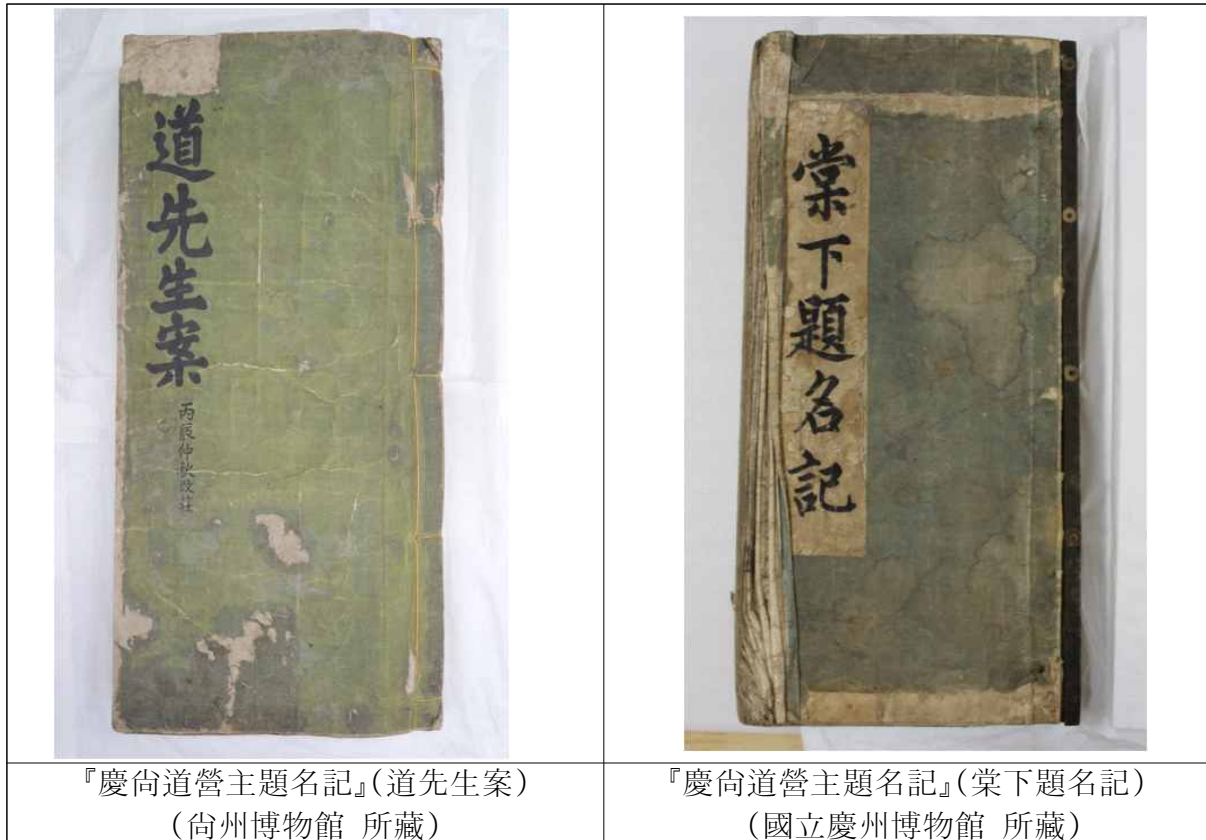 道先生案
丙辰仲秋改粧
棠下題名記
『慶尙道營主題名記』(道先生案)
(尙州博物館 所藏)
『慶尙道營主題名記』(棠下題名記)
(國立慶州博物館 所藏)